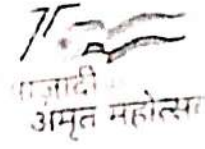 75
आज़ादी
अमृत महोत्सव